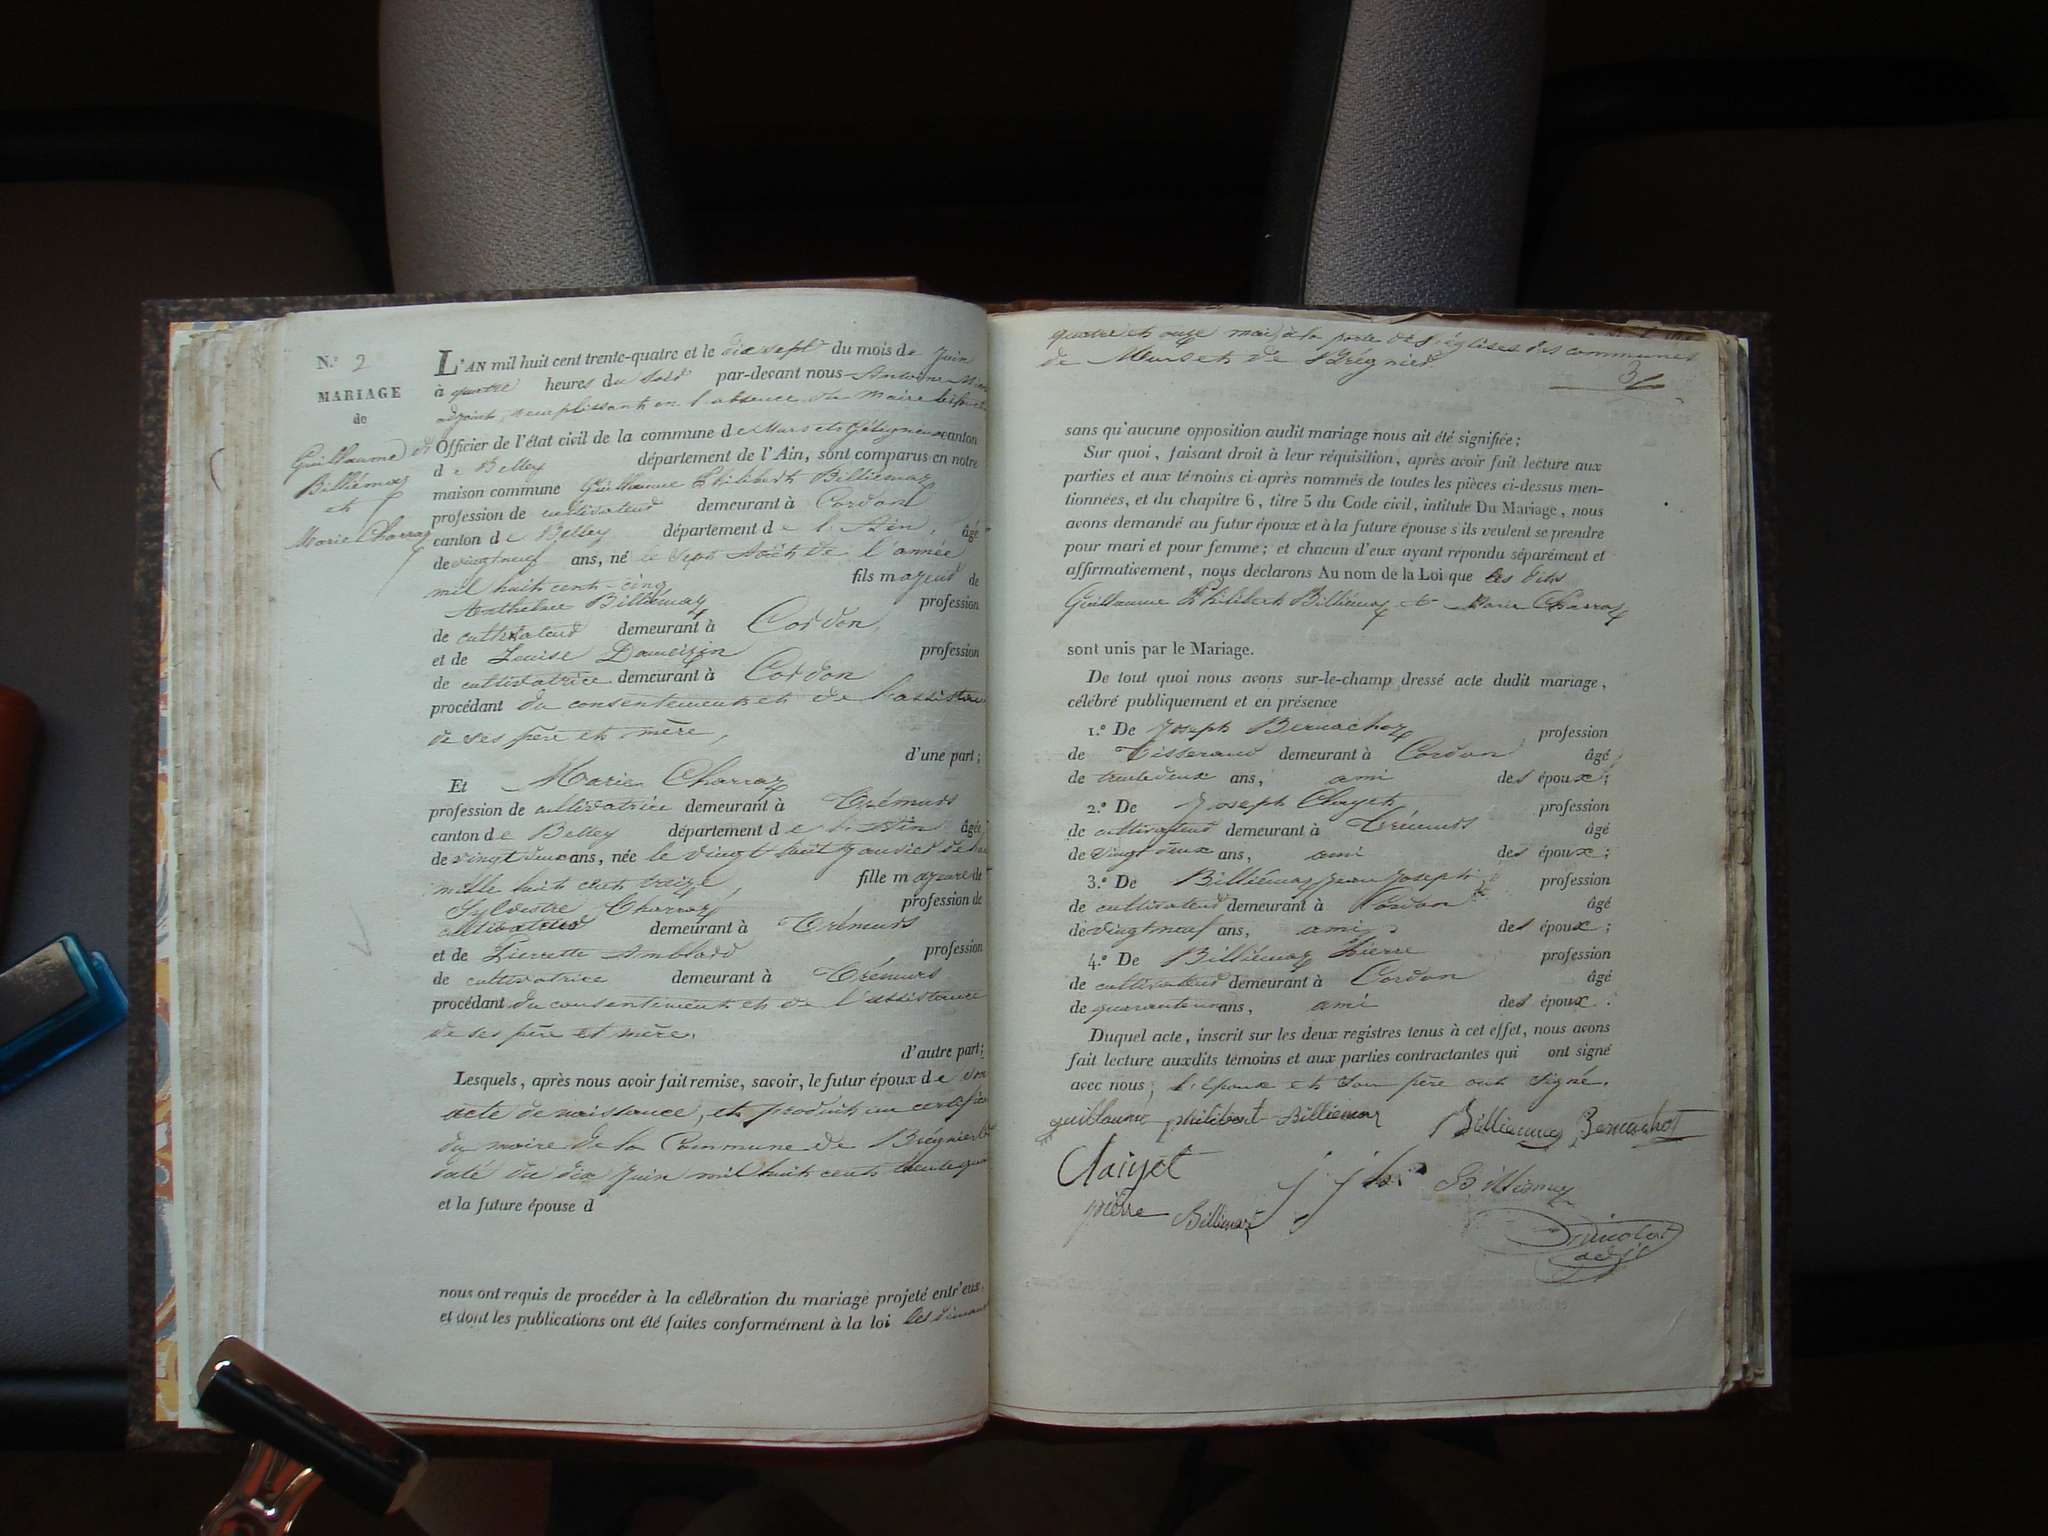 N.º 2
MARIAGE
de
Guillaume
Billiémaz
et
Marie Charraz
L'AN mil huit cent trente-quatre et le dix sept du mois de Juin
à quatre heures du soir par-devant nous Antoine
adjoint, remplissant en l'absence du Maire les
Officier de l'état civil de la commune de Murs et Gélignieux canton
de Belley département de l'Ain, sont comparus en notre
maison commune Guillaume Philibert Billiémaz
profession de cultivateur demeurant à Cordon
canton de Belley département de l'Ain, âgé
de vingt neuf ans, né le sept Août de l'année
mil huit cent-cinq fils majeur de
Anthelme Billiémaz profession
de cultivateur demeurant à Cordon
et de Louise Dameizin profession
de cultivatrice demeurant à Cordon
procédant du consentement et de l'assistance
de ses père et mère,
d'une part;
Et Marie Charraz
profession de cultivatrice demeurant à Crémurs
canton de Belley département de l'Ain âgée
de vingt deux ans, née le vingt huit Janvier de
mille huit cent treize, fille majeure de
Sylvestre Charraz profession de
cultivateur demeurant à Crémurs
et de Pierrette Amblard profession
de cultivatrice demeurant à Crémurs
procédant du consentement et de l'assistance
de ses père et mère.
d'autre part;
Lesquels, après nous avoir fait remise, savoir, le futur époux de son
acte de naissance, et produit un certificat
du maire de la Commune de
daté du dix Juin mil huit cent
et la future épouse d
nous ont requis de procéder à la célébration du mariage projeté entr'eux,
et dont les publications ont été faites conformément à la loi les
quatre et onze mai, à la porte des églises des communes
de Murs et de Brégnier.
sans qu'aucune opposition audit mariage nous ait été signifiée;
Sur quoi, faisant droit à leur réquisition, après avoir fait lecture aux
parties et aux témoins ci-après nommés de toutes les pièces ci-dessus men-
tionnées, et du chapitre 6, titre 5 du Code civil, intitule Du Mariage, nous
avons demandé au futur époux et à la future épouse s'ils veulent se prendre
pour mari et pour femme; et chacun d'eux ayant répondu séparément et
affirmativement, nous déclarons Au nom de la Loi que les dits
Guillaume Philibert Billiémaz et Marie Charraz
sont unis par le Mariage.
De tout quoi nous avons sur-le-champ dressé acte dudit mariage,
célébré publiquement et en présence
1.º De Joseph Bernachoz profession
de Tisserand demeurant à Cordon âgé
de trente deux ans, ami des époux;
2.º De Joseph Clayet, profession
de cultivateur demeurant à Crémurs âgé
de vingt deux ans, ami des époux;
3.º De Billiémaz Jean Joseph profession
de cultivateur demeurant à Cordon âgé
de vingt neuf ans, ami des époux;
4.º De Billiémaz Pierre profession
de cultivateur demeurant à Cordon âgé
de quarante un ans, ami des époux.
Duquel acte, inscrit sur les deux registres tenus à cet effet, nous avons
fait lecture auxdits témoins et aux parties contractantes qui ont signé
avec nous, l'époux et son père ont signé.
guillaume philibert Billiemaz Billiemaz Bernachot
Claiyet Billiemaz
pierre Billiemaz